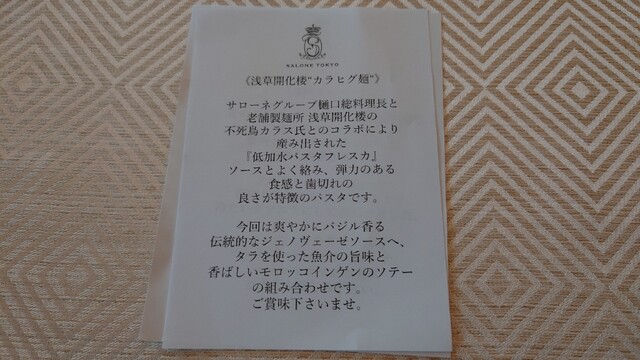 SALONE TOKYO
《浅草開化楼"カラヒグ麺"》
サローネグループ樋口総料理長と
老舗製麺所 浅草開化楼の
不死鳥カラス氏とのコラボにより
産み出された
『低加水パスタフレスカ』
ソースとよく絡み、弾力のある
食感と歯切れの
良さが特徴のパスタです。
今回は爽やかにバジル香る
伝統的なジェノヴェーゼソースへ、
タラを使った魚介の旨味と
香ばしいモロッコインゲンのソテー
の組み合わせです。
ご賞味下さいませ。